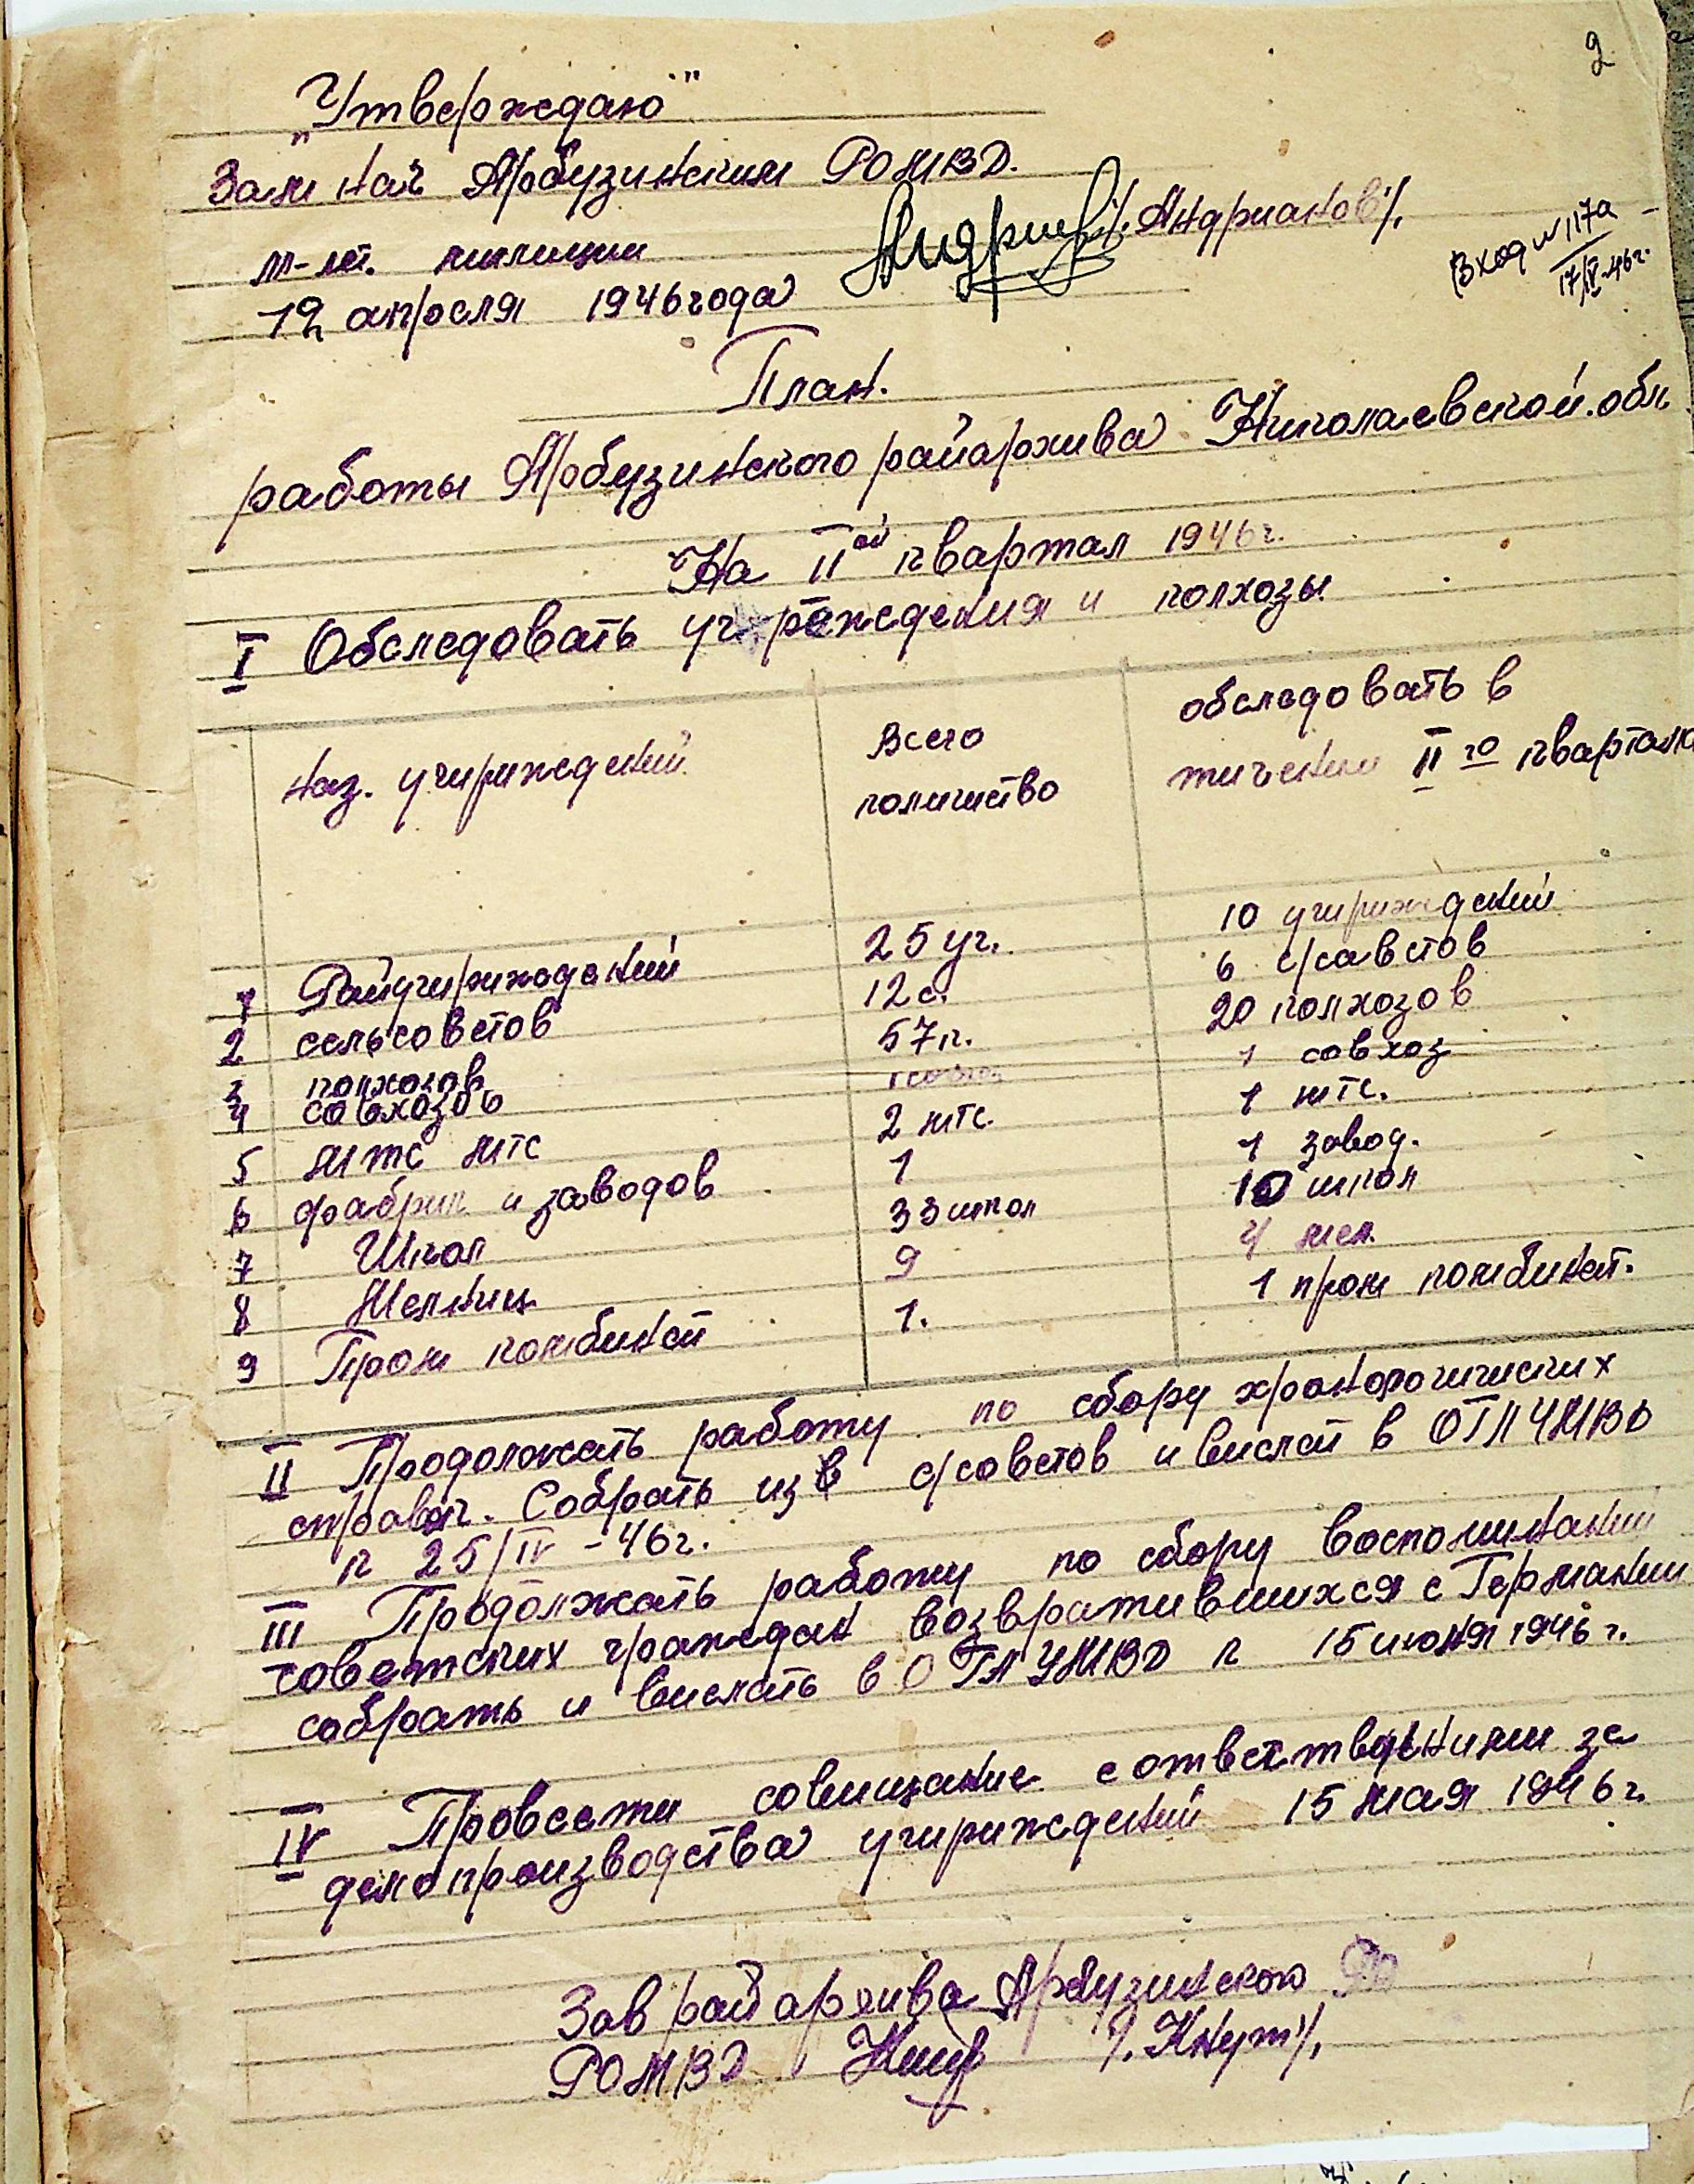 2
„Утверждаю"
Зам нач Арбузинским РОМВД.
м-лт. милиции /Андрианов/.
Вход № 117а
17/IV-46г.
12 апреля 1946 года
План.
работы Арбузинского райархива Николаевской обл
На II ой квартал 1946г.
I Обследовать учреждения и колхозы
Наз. учириждений Всего количиство обследовать в тичении II го квартала
1 Райучириждений 25 уч. 10 учириждений
2 сельсоветов 12 с. 6 с/саветов
3 колхозов 57 к. 20 колхозов
4 совхозов 1 совхоз 1 совхоз
5 МТС МТС 2 мтс. 1 мтс.
6 фабрик и заводов 1 1 завод.
7 Школ 33 школ 10 школ
8 Мельниц 9 4 мел.
9 Пром комбинат 1. 1 пром комбинат.
II Продолжать работу по сбору хронологичиских
справоч. Собрать из с/советов и вислат в ОГА УМВД
к 25/IV-46г.
III Продолжать работу по сбору воспоминаний
советских граждан возвратившихся с Германии
собрать и вислать в ОГА УМВД к 15 июня 1946 г.
IV Провести совищание с ответствеными за
делопроизводства учириждений 15 мая 1946 г.
Зав райархива Арбузинского
РОМВД /Кнут/.